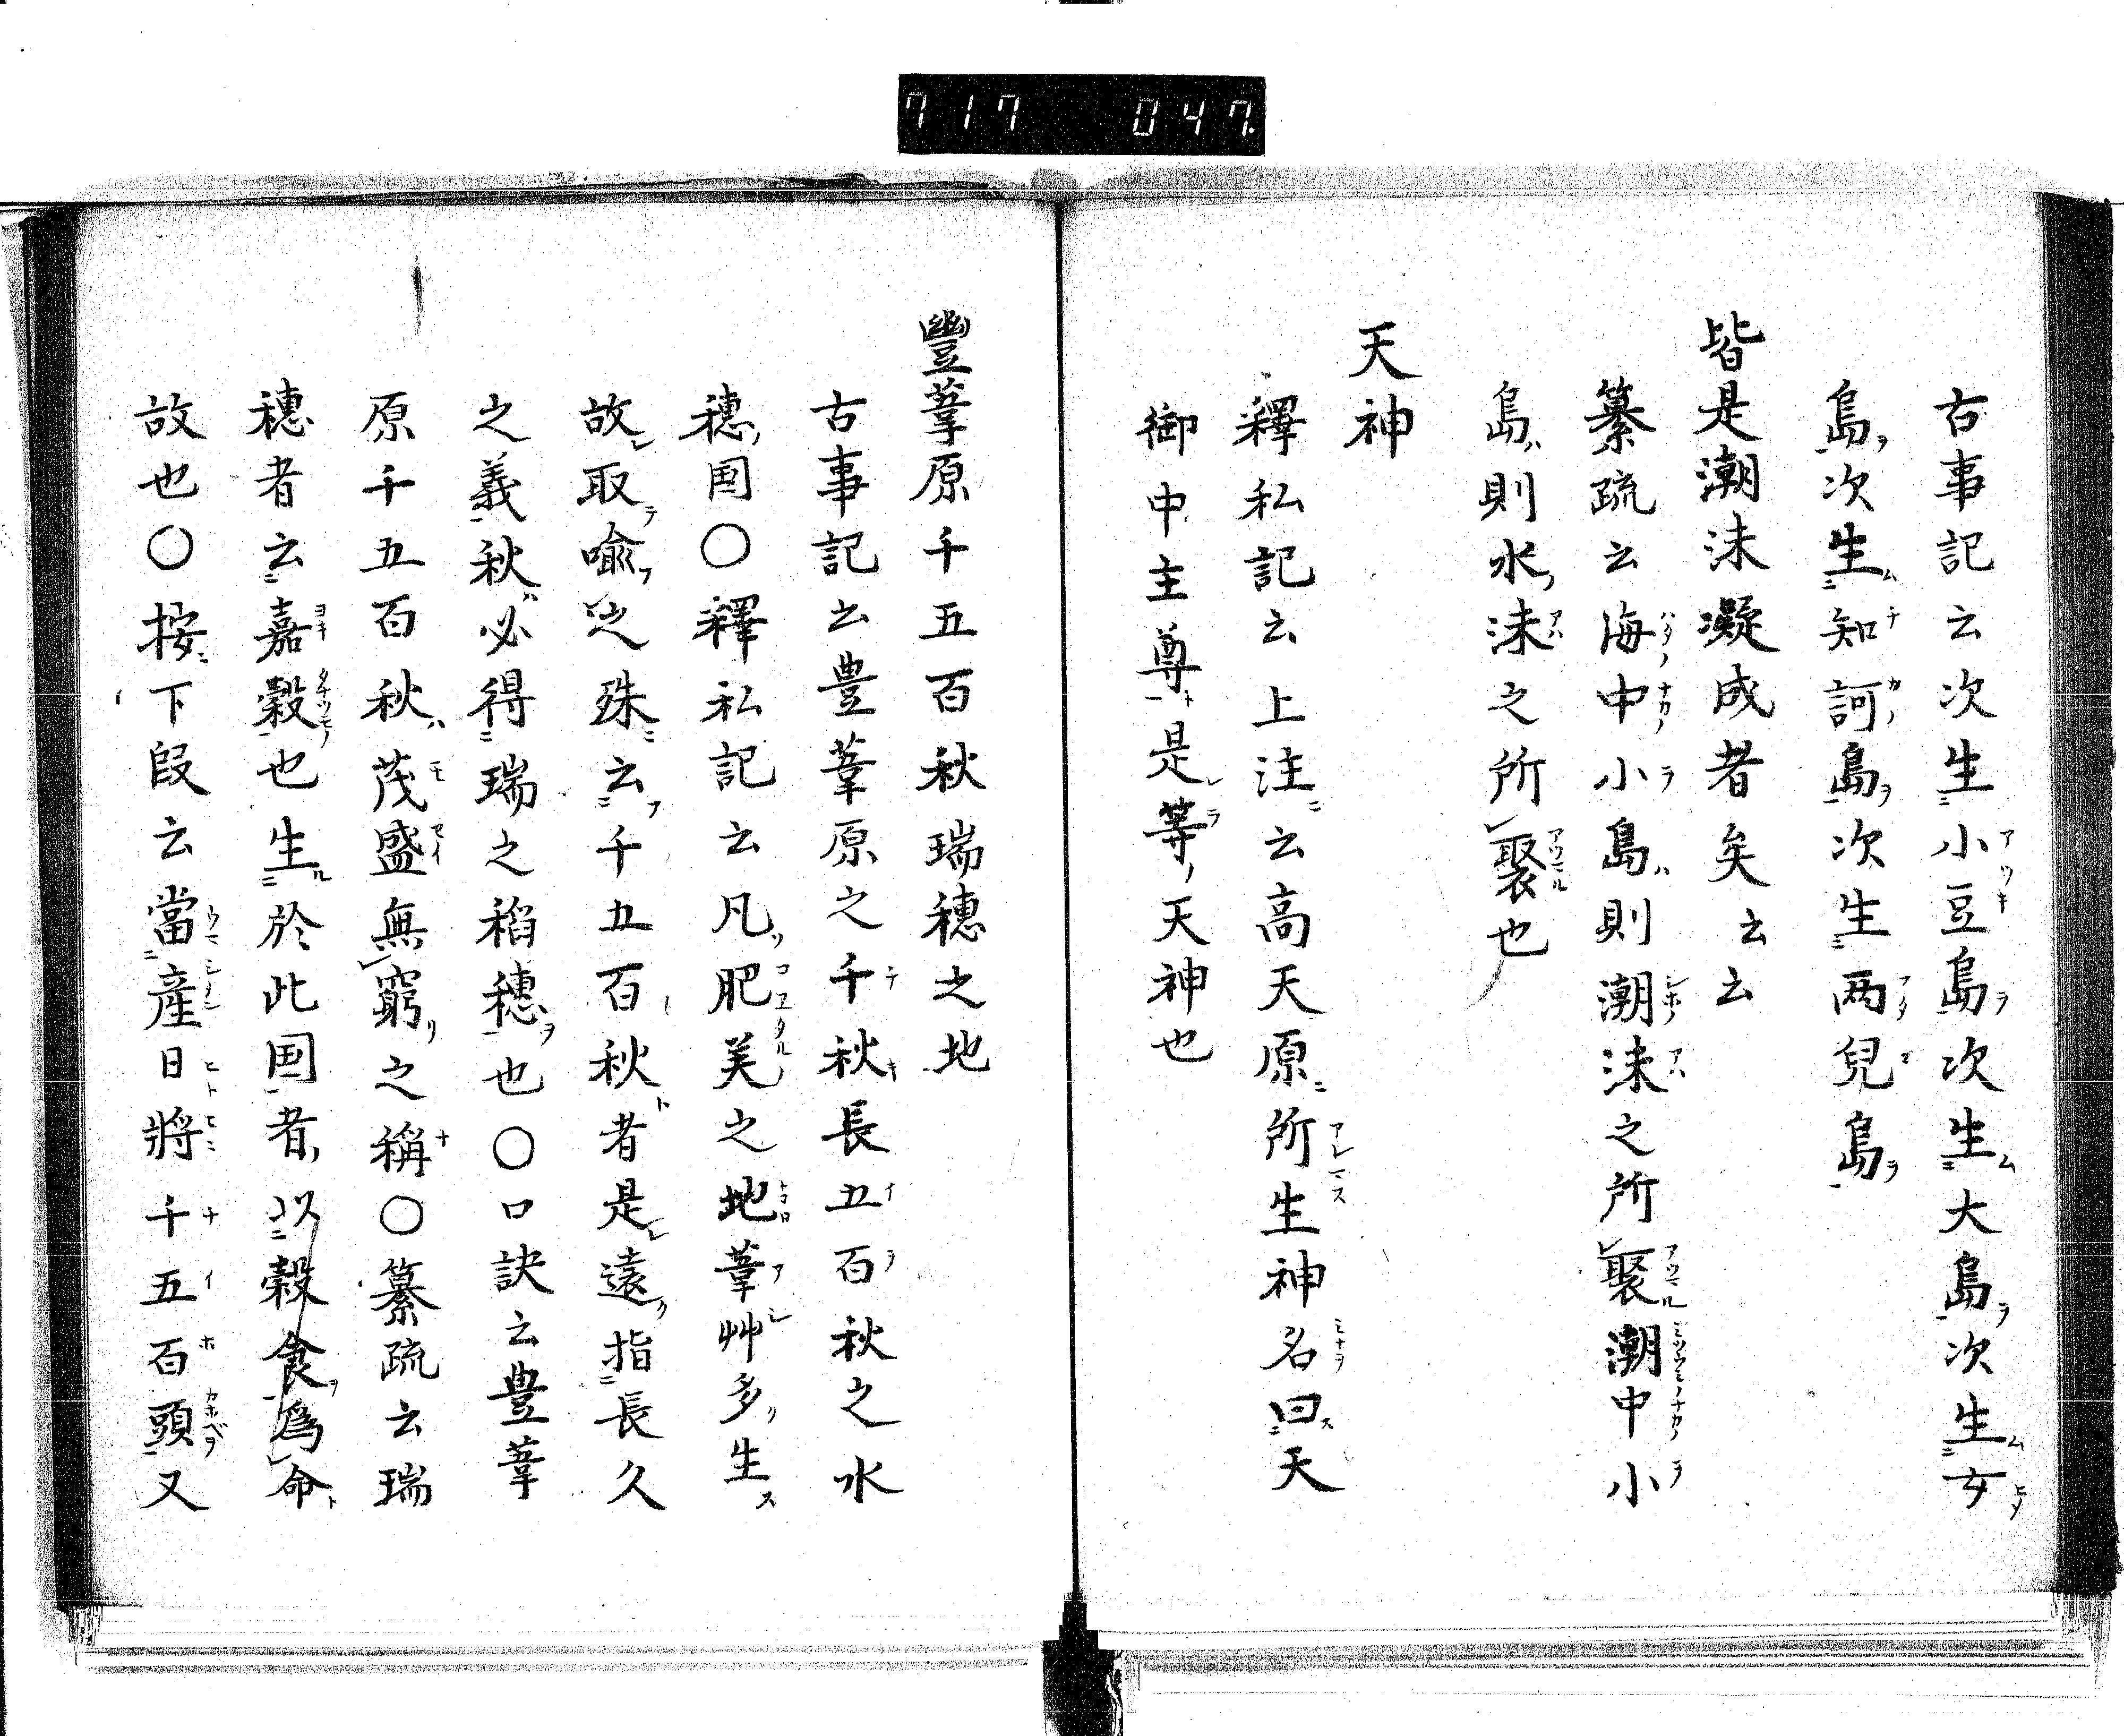 717 047
古事記云次生小豆島次生大島次生女
島次生知訶島次生両兒島
皆是潮沫凝成者矣云云
纂疏云海中小島則潮沫之所聚潮中小
島則水沫之所聚也
天神
釋私記云上注云高天原所生神名曰天
御中主尊是等天神也
豐葦原千五百秋瑞穗之地
古事記云豊葦原之千秋長五百秋之水
穗国〇釋私記云凡肥美之地葦艸多生
故取喩之殊云千五百秋者是遠指長久
之義秋必得瑞之稻穗也〇口訣云豊葦
原千五百秋茂盛無窮之稱〇纂疏云瑞
穗者云嘉穀也生於此国者以穀食爲命
故也〇按下段云當産日將千五百頭又